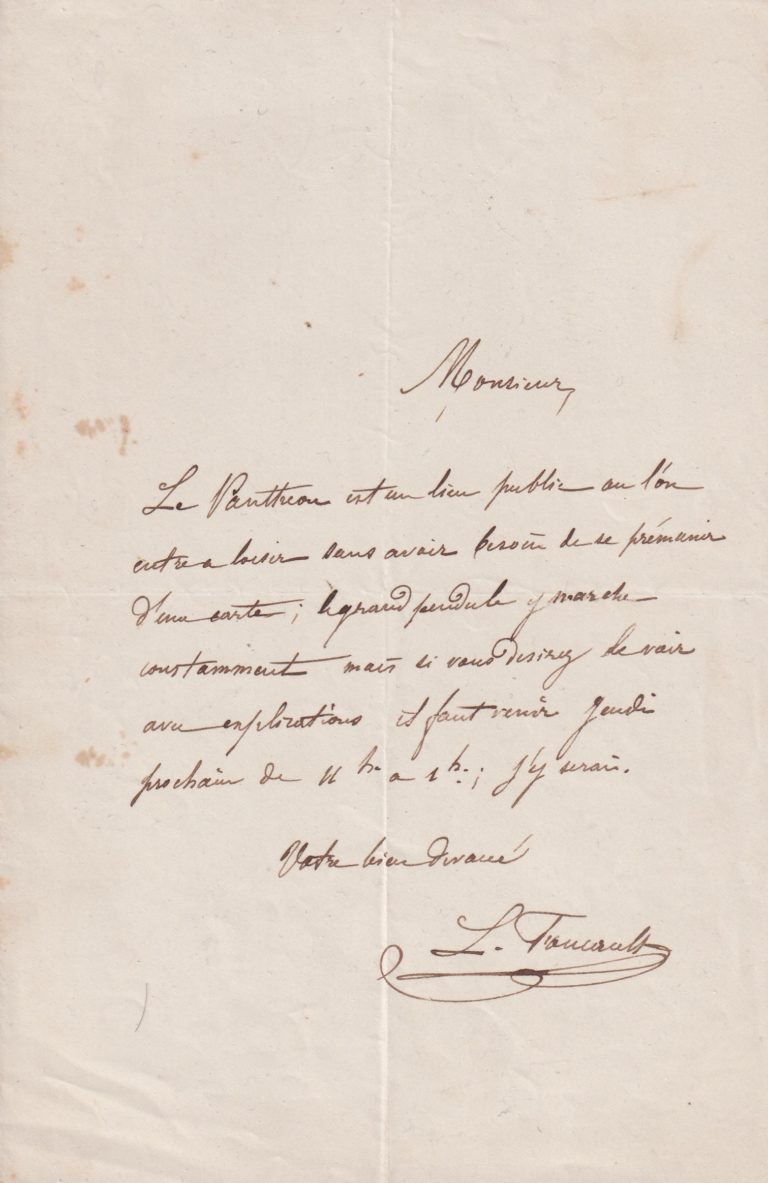 Monsieur,
Le Panthéon est un lieu public ou l'on
entre a loisir sans avoir besoin de se prémunir
d'une carte ; le grand pendule y marche
constamment mais si vous desirez le voir
avec explications il faut venir Jeudi
prochain de 11 h. a 1 h. ; j'y serais.
Votre bien devoué
L. Foucault